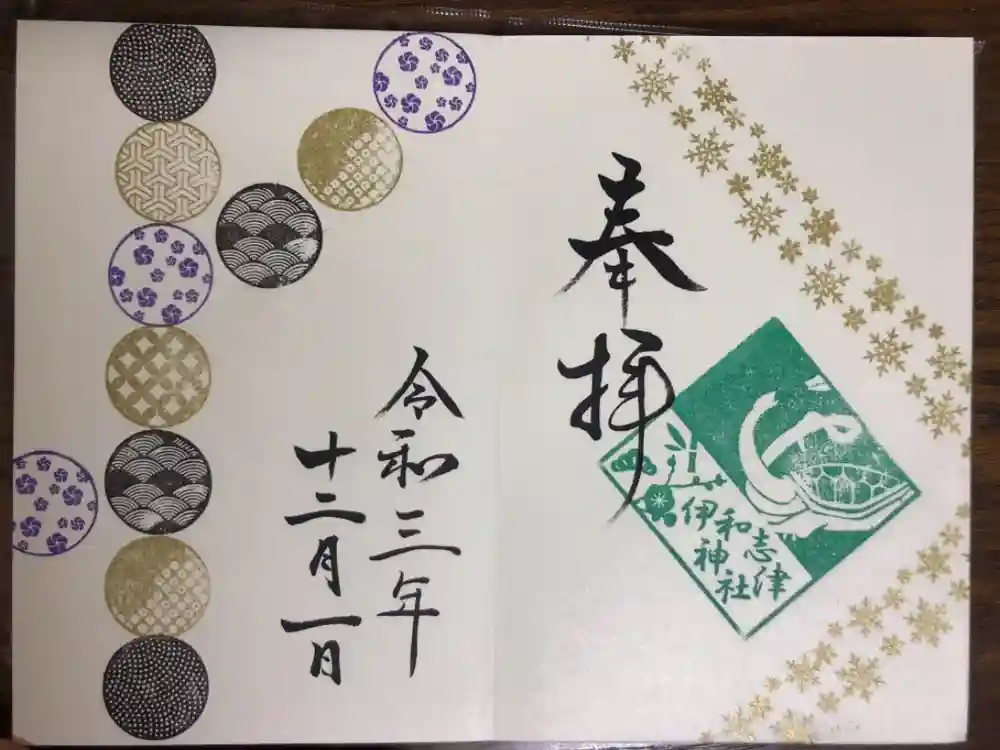 奉拝
伊和志津
神社
令和三年
十二月一日